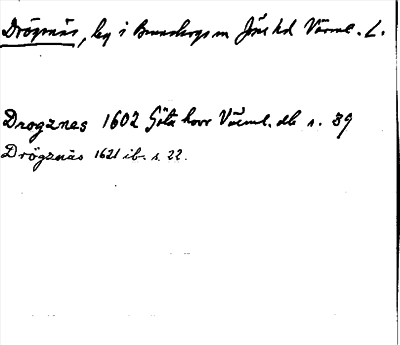 Drögnäs, by i Brunskogs sn Jöse hd Värml. L.
Drogznes 1602 Göta hovr Värml. db s. 89
Drögznäs 1621 ib. s. 22.